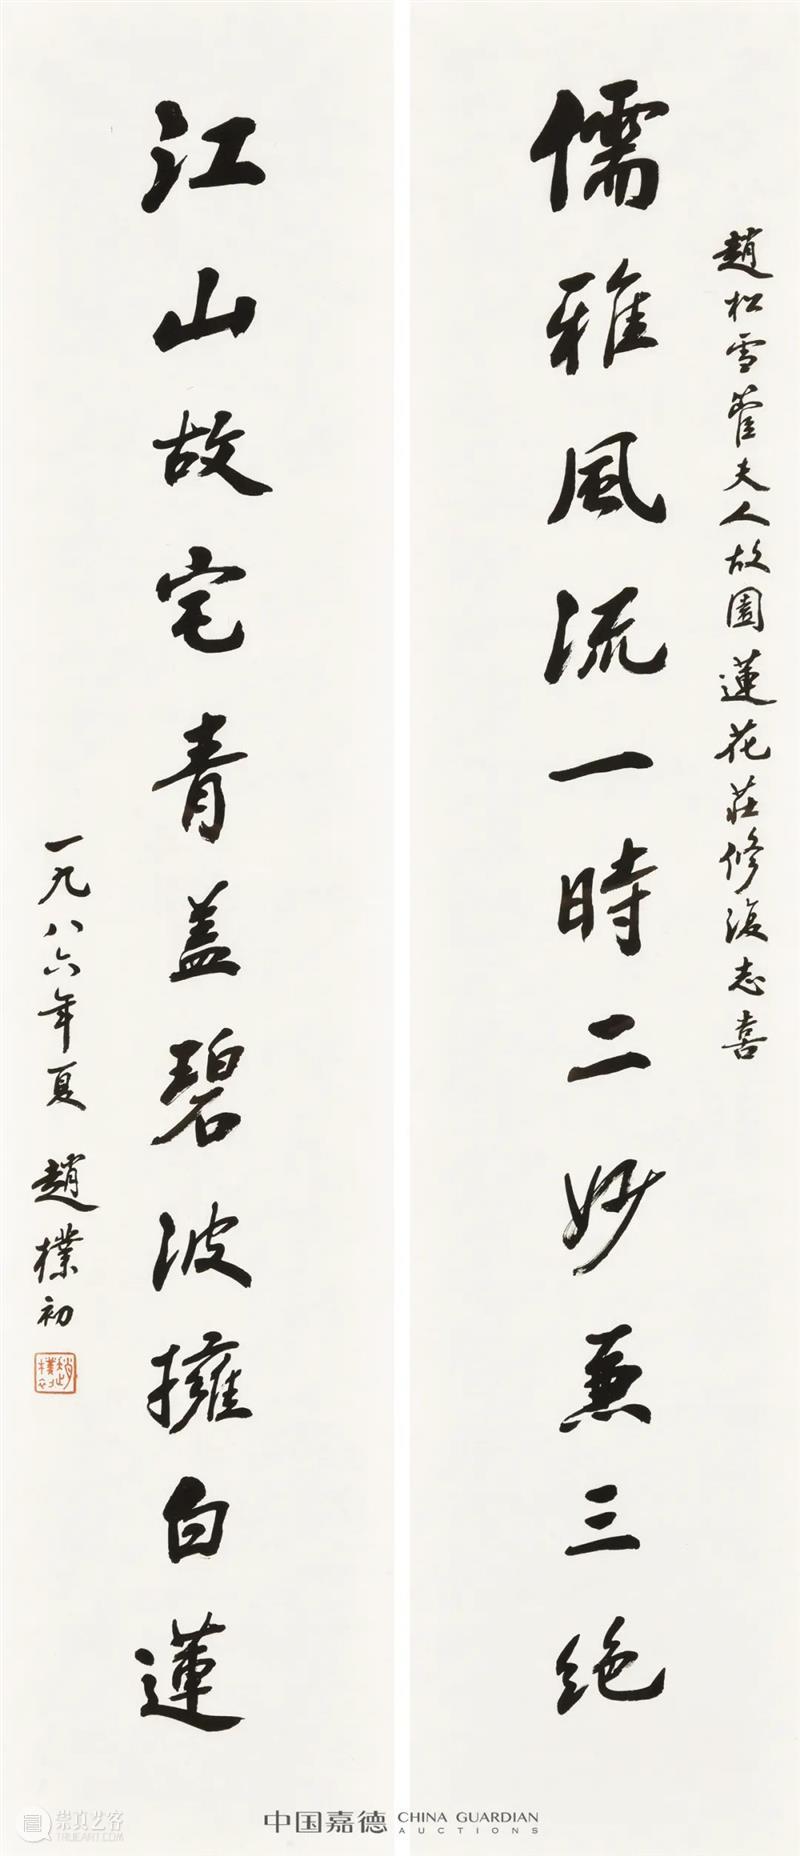 趙松雪管夫人故園蓮花莊修復志喜
儒雅風流一時二妙兼三絕
江山故宅青盖碧波擁白蓮
一九八六年夏 趙樸初
趙樸初
中国嘉德 CHINA GUARDIAN AUCTIONS
崇真艺客
TRUEART.COM